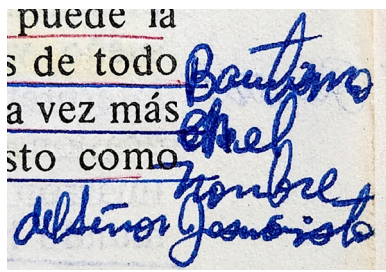 puede la
s de todo
a vez más
sto como
Bautismo
en el
Nombre
del señor Jesucristo